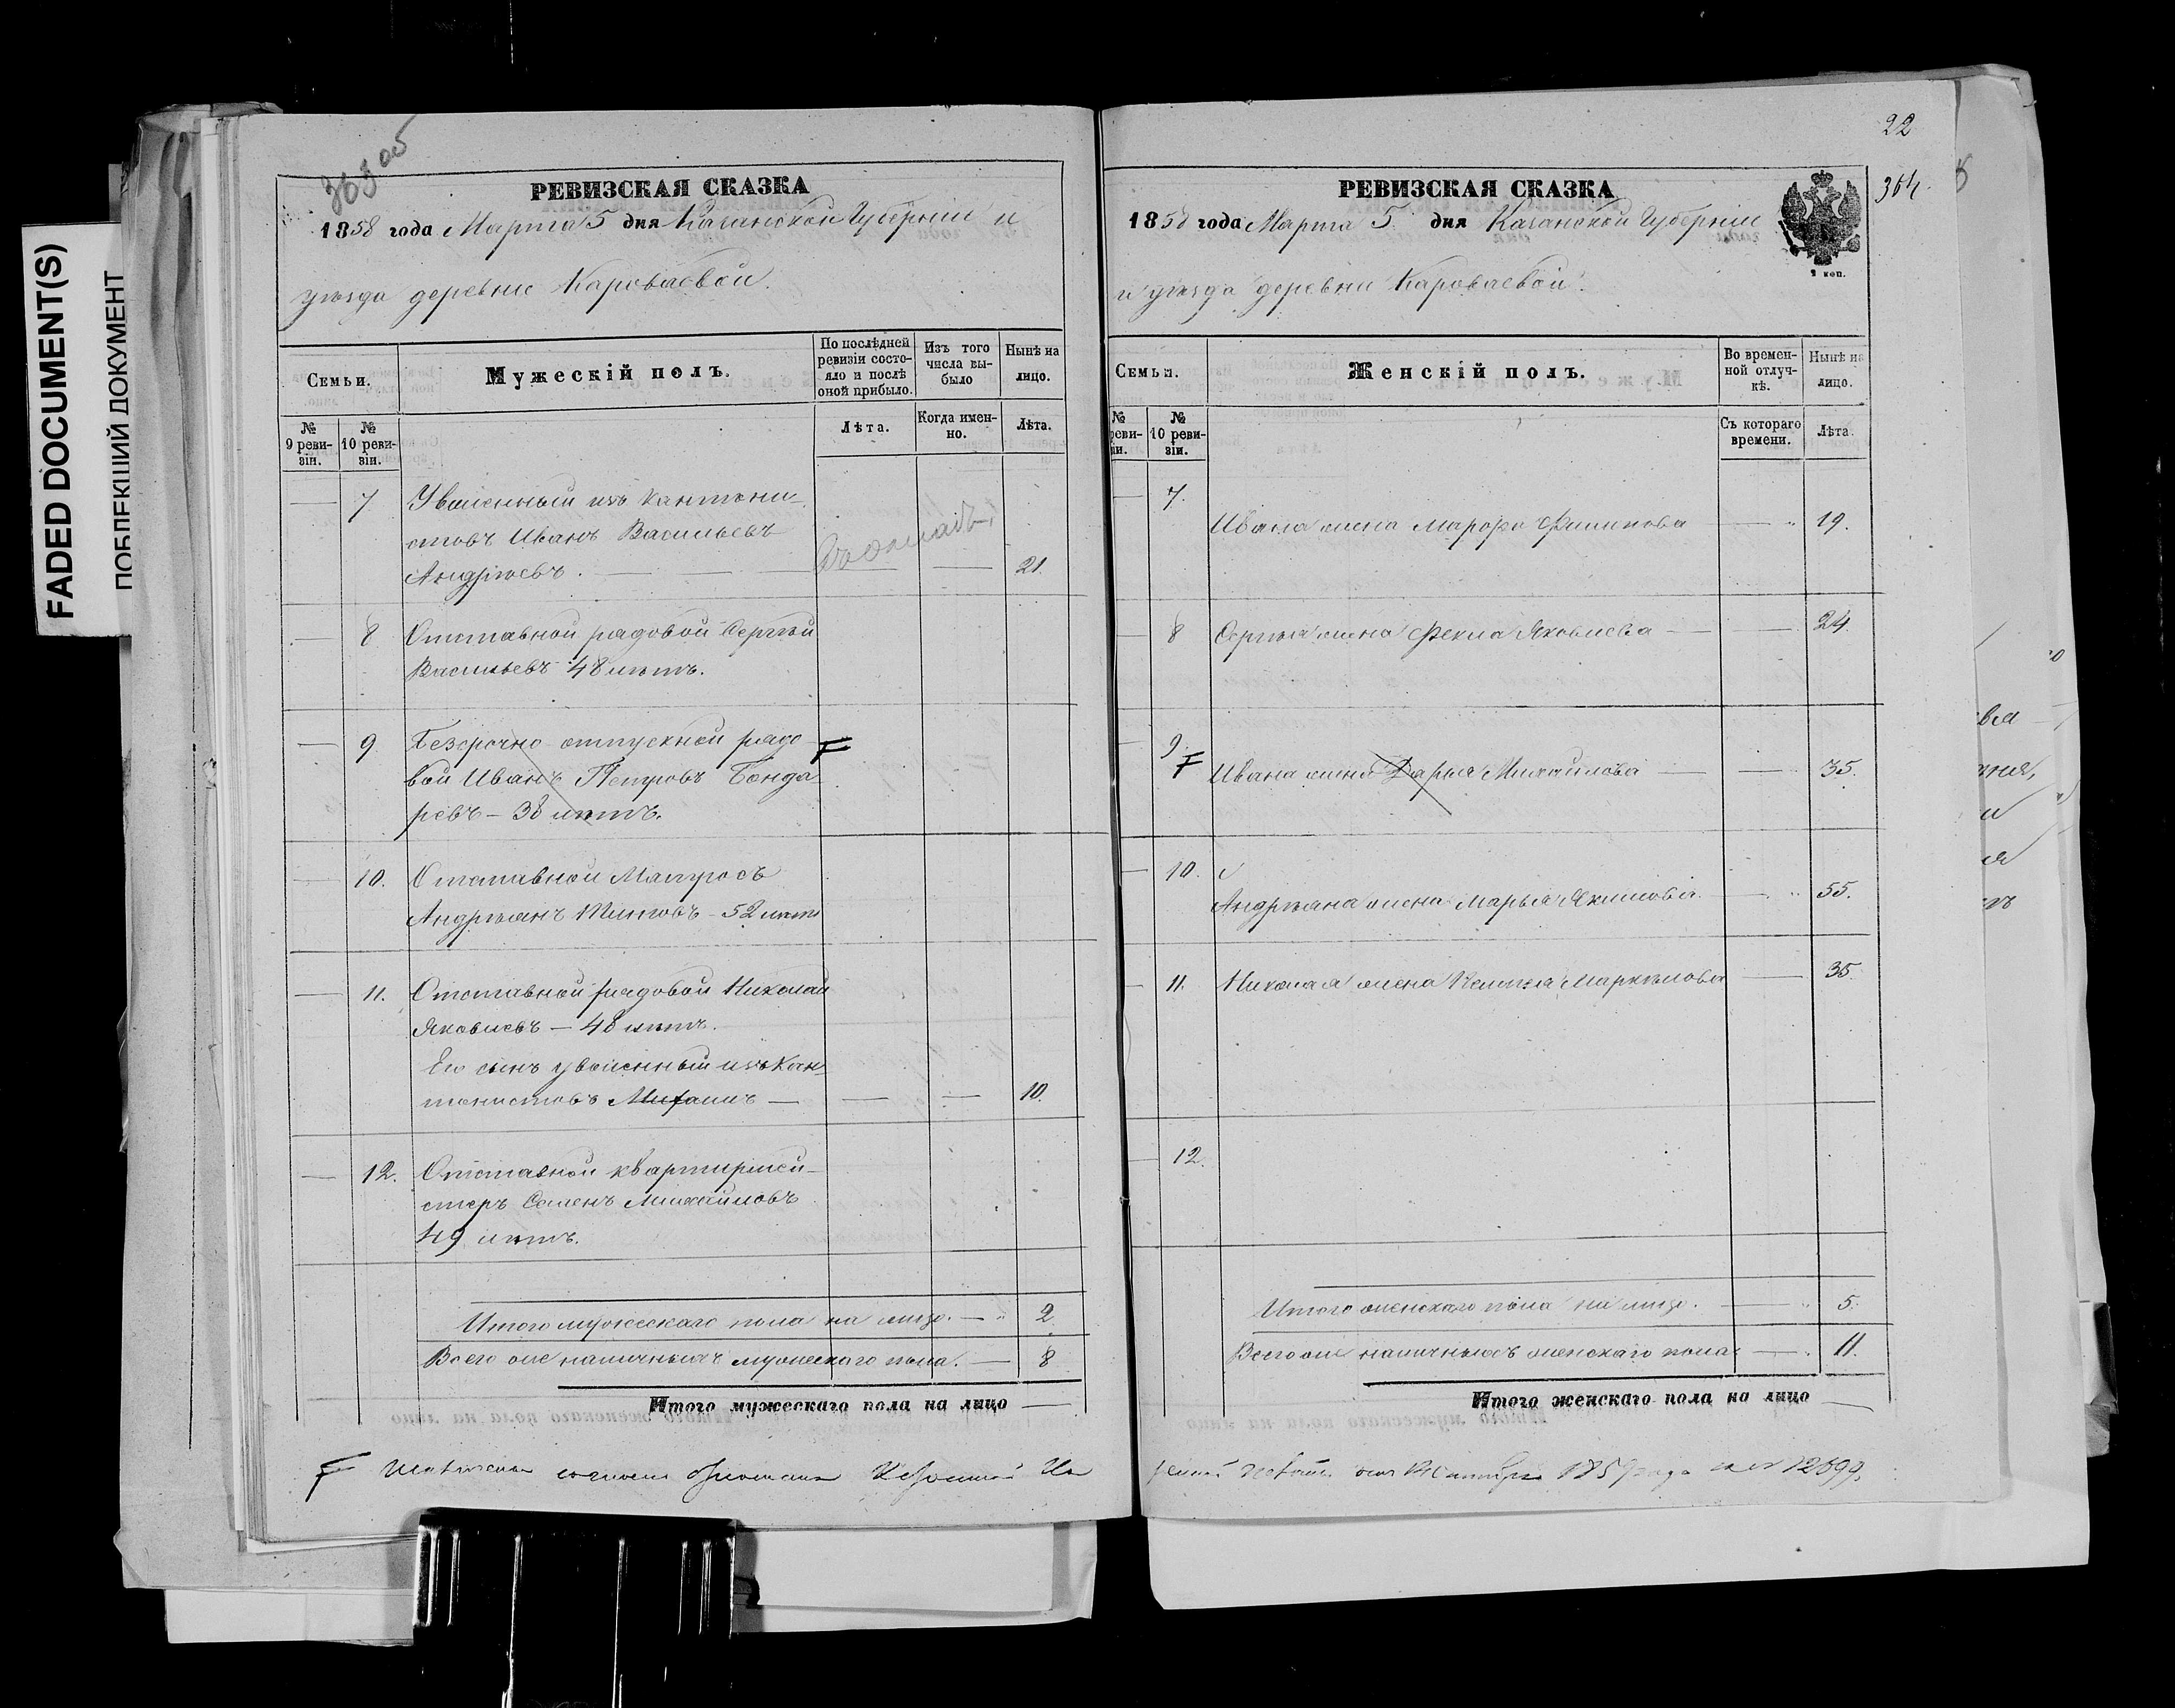 FADED DOCUMENT(S)
ПОБЛЕКШИЙ ДОКУМЕНТ
363 об
РЕВИЗСКАЯ СКАЗКА
1858 года Марта 5 дня Казанской Губерніи и
уѣзда деревни Караваевой.
Семьи.
Мужескій полъ.
По послѣдней ревизіи состояло и послѣ оной прибыло.
Изъ того числа выбыло
Нынѣ на лицо.
№ 9 ревизіи.
№ 10 ревизіи.
Лѣта.
Когда именно.
Лѣта.
7 Уволенный изъ кантони-
стовъ Иванъ Васильевъ
Андрѣевъ. 21.
8 Отставной рядовой Сергѣй
Васильевъ 48 лѣтъ.
9 Безсрочно отпускной рядо
вой Иванъ Петровъ Бонда
ревъ – 38 лѣтъ.
10. Отставной Матросъ
Андреянъ Титовъ – 52 лѣтъ
11. Отставной рядовой Николай
Яковлевъ – 48 лѣтъ.
Его сынъ уволенный изъ кан
тонистовъ Михаилъ — 10.
12. Отставной квартирмей-
стеръ Семенъ Михайловъ
49 лѣтъ.
Итого мужескаго пола на лицо. — 2.
Всего же наличныхъ мужескаго пола. — 8
Итого мужескаго пола на лицо
22
364
РЕВИЗСКАЯ СКАЗКА
1858 года Марта 5. дня Казанской Губерніи
2 коп.
и уѣзда деревни Караваевой.
Семьи.
Женскій полъ.
Во временной отлучкѣ.
Нынѣ на лицо.
№ реви-
№ 10 ревизіи.
Съ котораго времени.
Лѣта.
7.
Ивана жена Марфа Филипова 19.
8 Сергѣя жена Фекла Яковлева 24
9.
Ивана жена Дарья Михайлова 35.
10.
Андреяна жена Марья Якимова. 55.
11. Николая жена Маркелова 35
12.
Итого женскаго пола на лицо. 5.
Всего же наличныхъ женскаго пола 11.
Итого женскаго пола на лицо
1859 года за № 12699